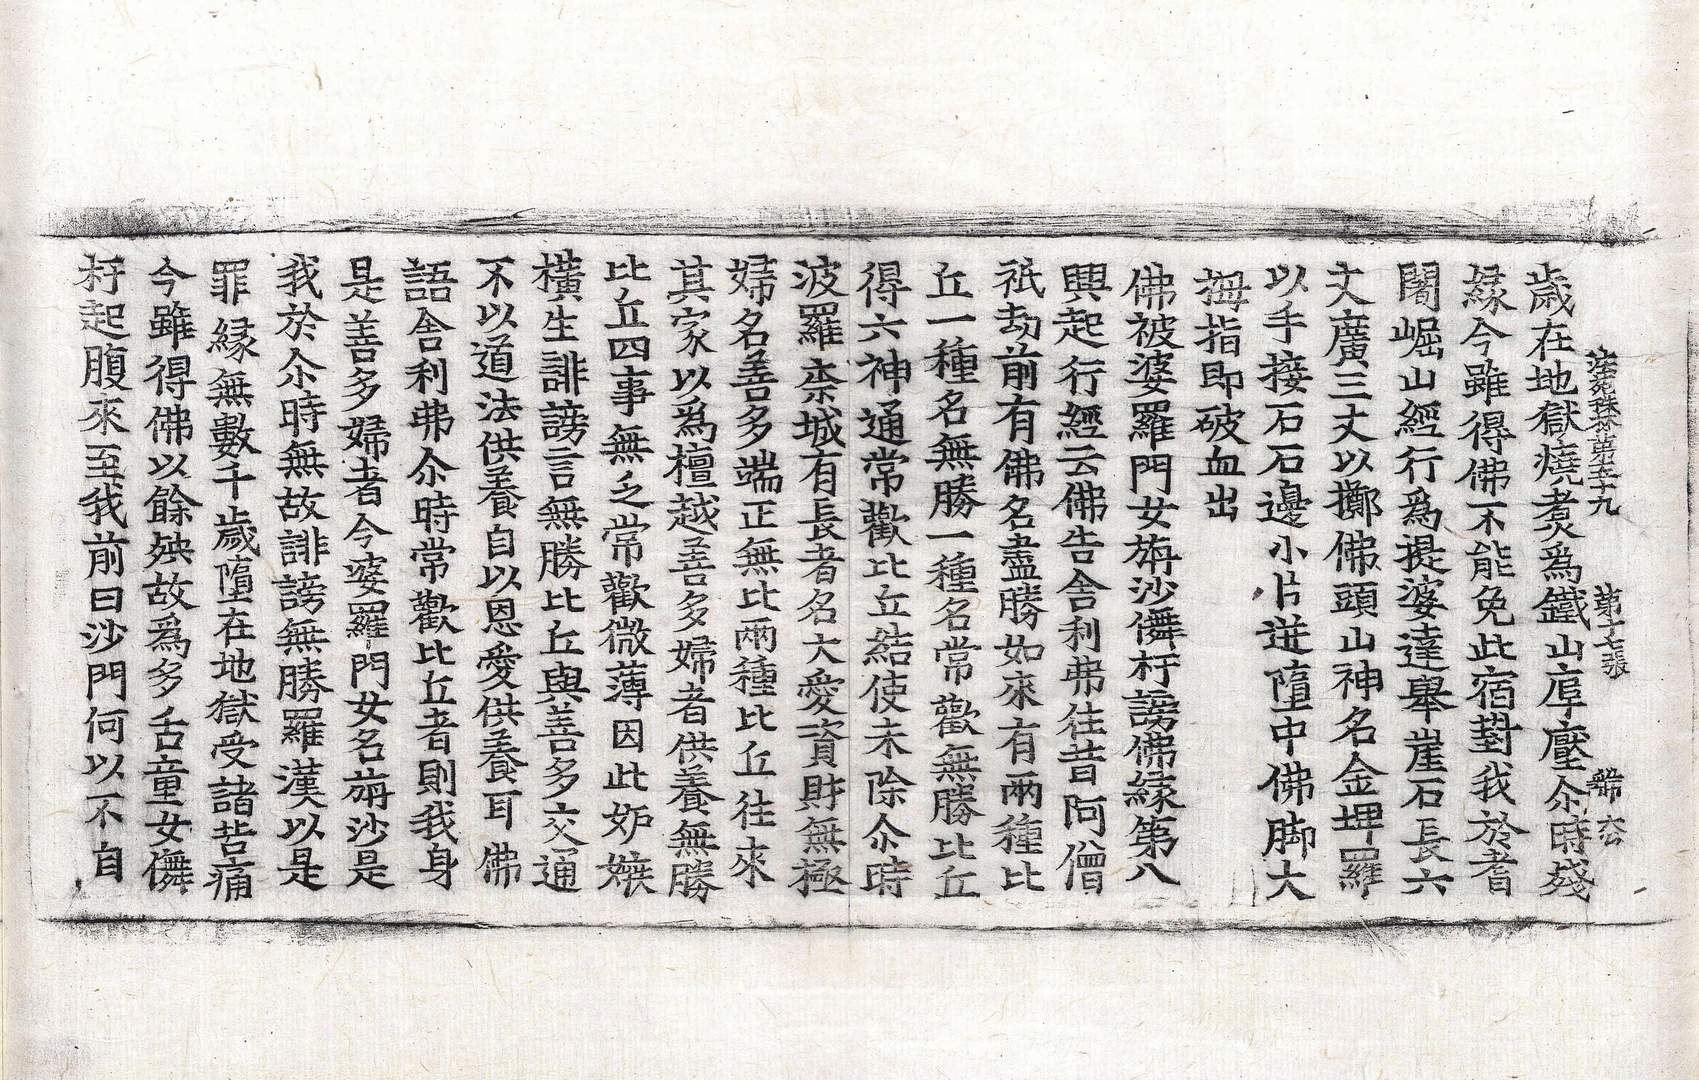 法苑珠林第五十九 第十七張 㪅 六
歲在地獄燒煑爲鐵山埠壓尒時殘
緣今雖得佛不能免此宿對我於耆
闍崛山經行爲提婆達舉崖石長六
丈廣三丈以擲佛頭山神名金埤羅
以手接石石邊小片迸墮中佛脚大
拇指即破血出
佛被婆羅門女旃沙儛杅謗佛緣第八
興起行經云佛告舍利弗往昔阿僧
祇劫前有佛名盡勝如來有兩種比
丘一種名無勝一種名常歡無勝比丘
得六神通常歡比丘結使未除尒時
波羅柰城有長者名大愛資財無極
婦名善多端正無比兩種比丘往來
其家以爲檀越善多婦者供養無勝
比丘四事無乏常歡微薄因此妒嫉
橫生誹謗言無勝比丘與善多交通
不以道法供養自以恩愛供養耳佛
語舍利弗尒時常歡比丘者則我身
是善多婦者今婆羅門女名旃沙是
我於尒時無故誹謗無勝羅漢以是
罪緣無數千歲墮在地獄受諸苦痛
今雖得佛以餘殃故爲多舌童女儛
杅起腹來至我前曰沙門何以不自